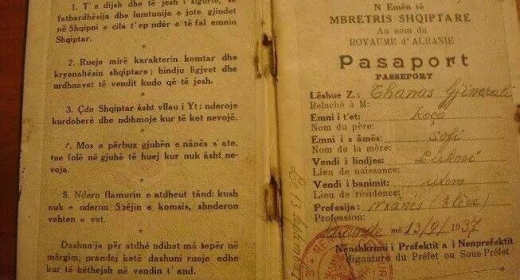 1. T'a dijsh dhe të jesh i sigurtë, se
fatbardhësija dhe lumtunija e jote gjindet
në Shqipni e cila t'ep ndër e të fal emnin
Shqiptar.
2. Rueje mirë karakterin komtar dhe
kryenaltësin shqiptare; bindju ligjvet dhe
urdhnavet të vendit kudo që të jesh.
3. Çdo Shqiptar âsht vllau i Yt: nderoje
kurdoherë dhe ndihmoje kur të ket nevojë.
4. Mos a përbuz gjuhën e nânës s'ate,
tue folë në gjuhë të huej kur nuk âsht ne-
voja.
5. Ndero flamurin e atdheut tând: kush
nuk e nderon Shêjin e komsis, shnderon
vehten e vet.
Dashunija për atdhé ndihat ma lepër në
mërgim; prandej katë dashuni rueje edhe
kur të këthejsh në vendin t'and.
N'Emën të
MBRETRIS SHQIPTARE
Au nom du
ROYAUME d'ALBANIE
Pasaport
PASSEPORT
Lëshue Z.: Thanas
Relaché à M:
Emni i t'et: Koço
Nom du père:
Emni i s âmës: Sofi
Nom de la mère:
Vendi i lindjes: Lukovë
Lieu de naissance:
Vendi i banimit:
Lieu de résidence:
Profesija:
Profession:
më 13/9/1937
Nënshkrimi i Prefektit a i Nenprefektit
Signature du Préfet ou Sous-Préfet